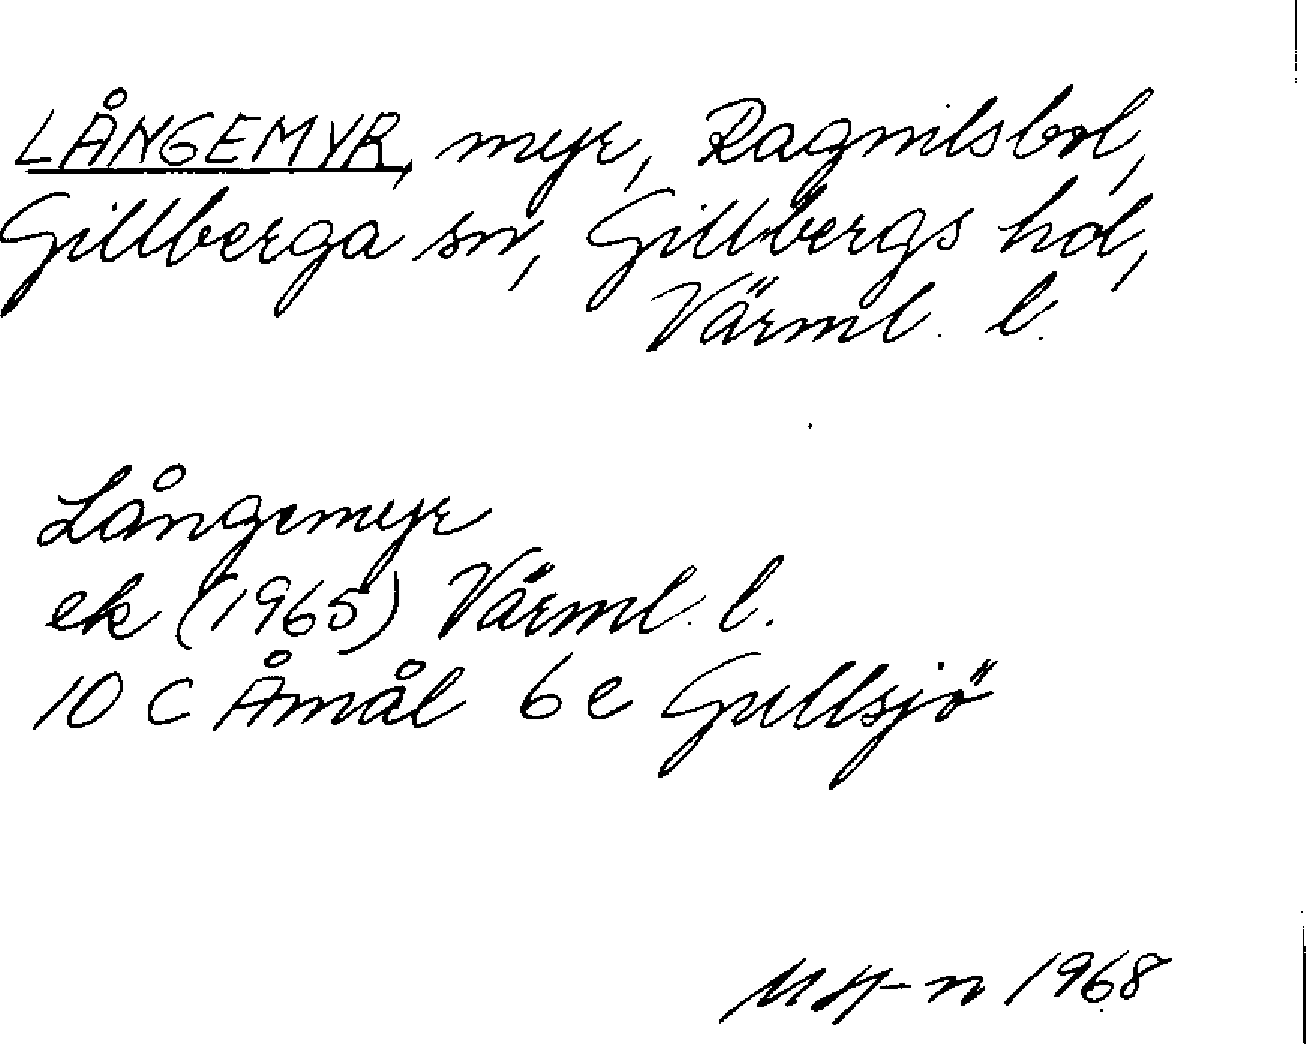 LÅNGEMYR, myr, Ragnilsbol,
Gillberga sn, Gillbergs hd,
Värml. l.
Långemyr
ek (1965) Värml. l.
10 C Åmål 6 e Gullsjö
1968